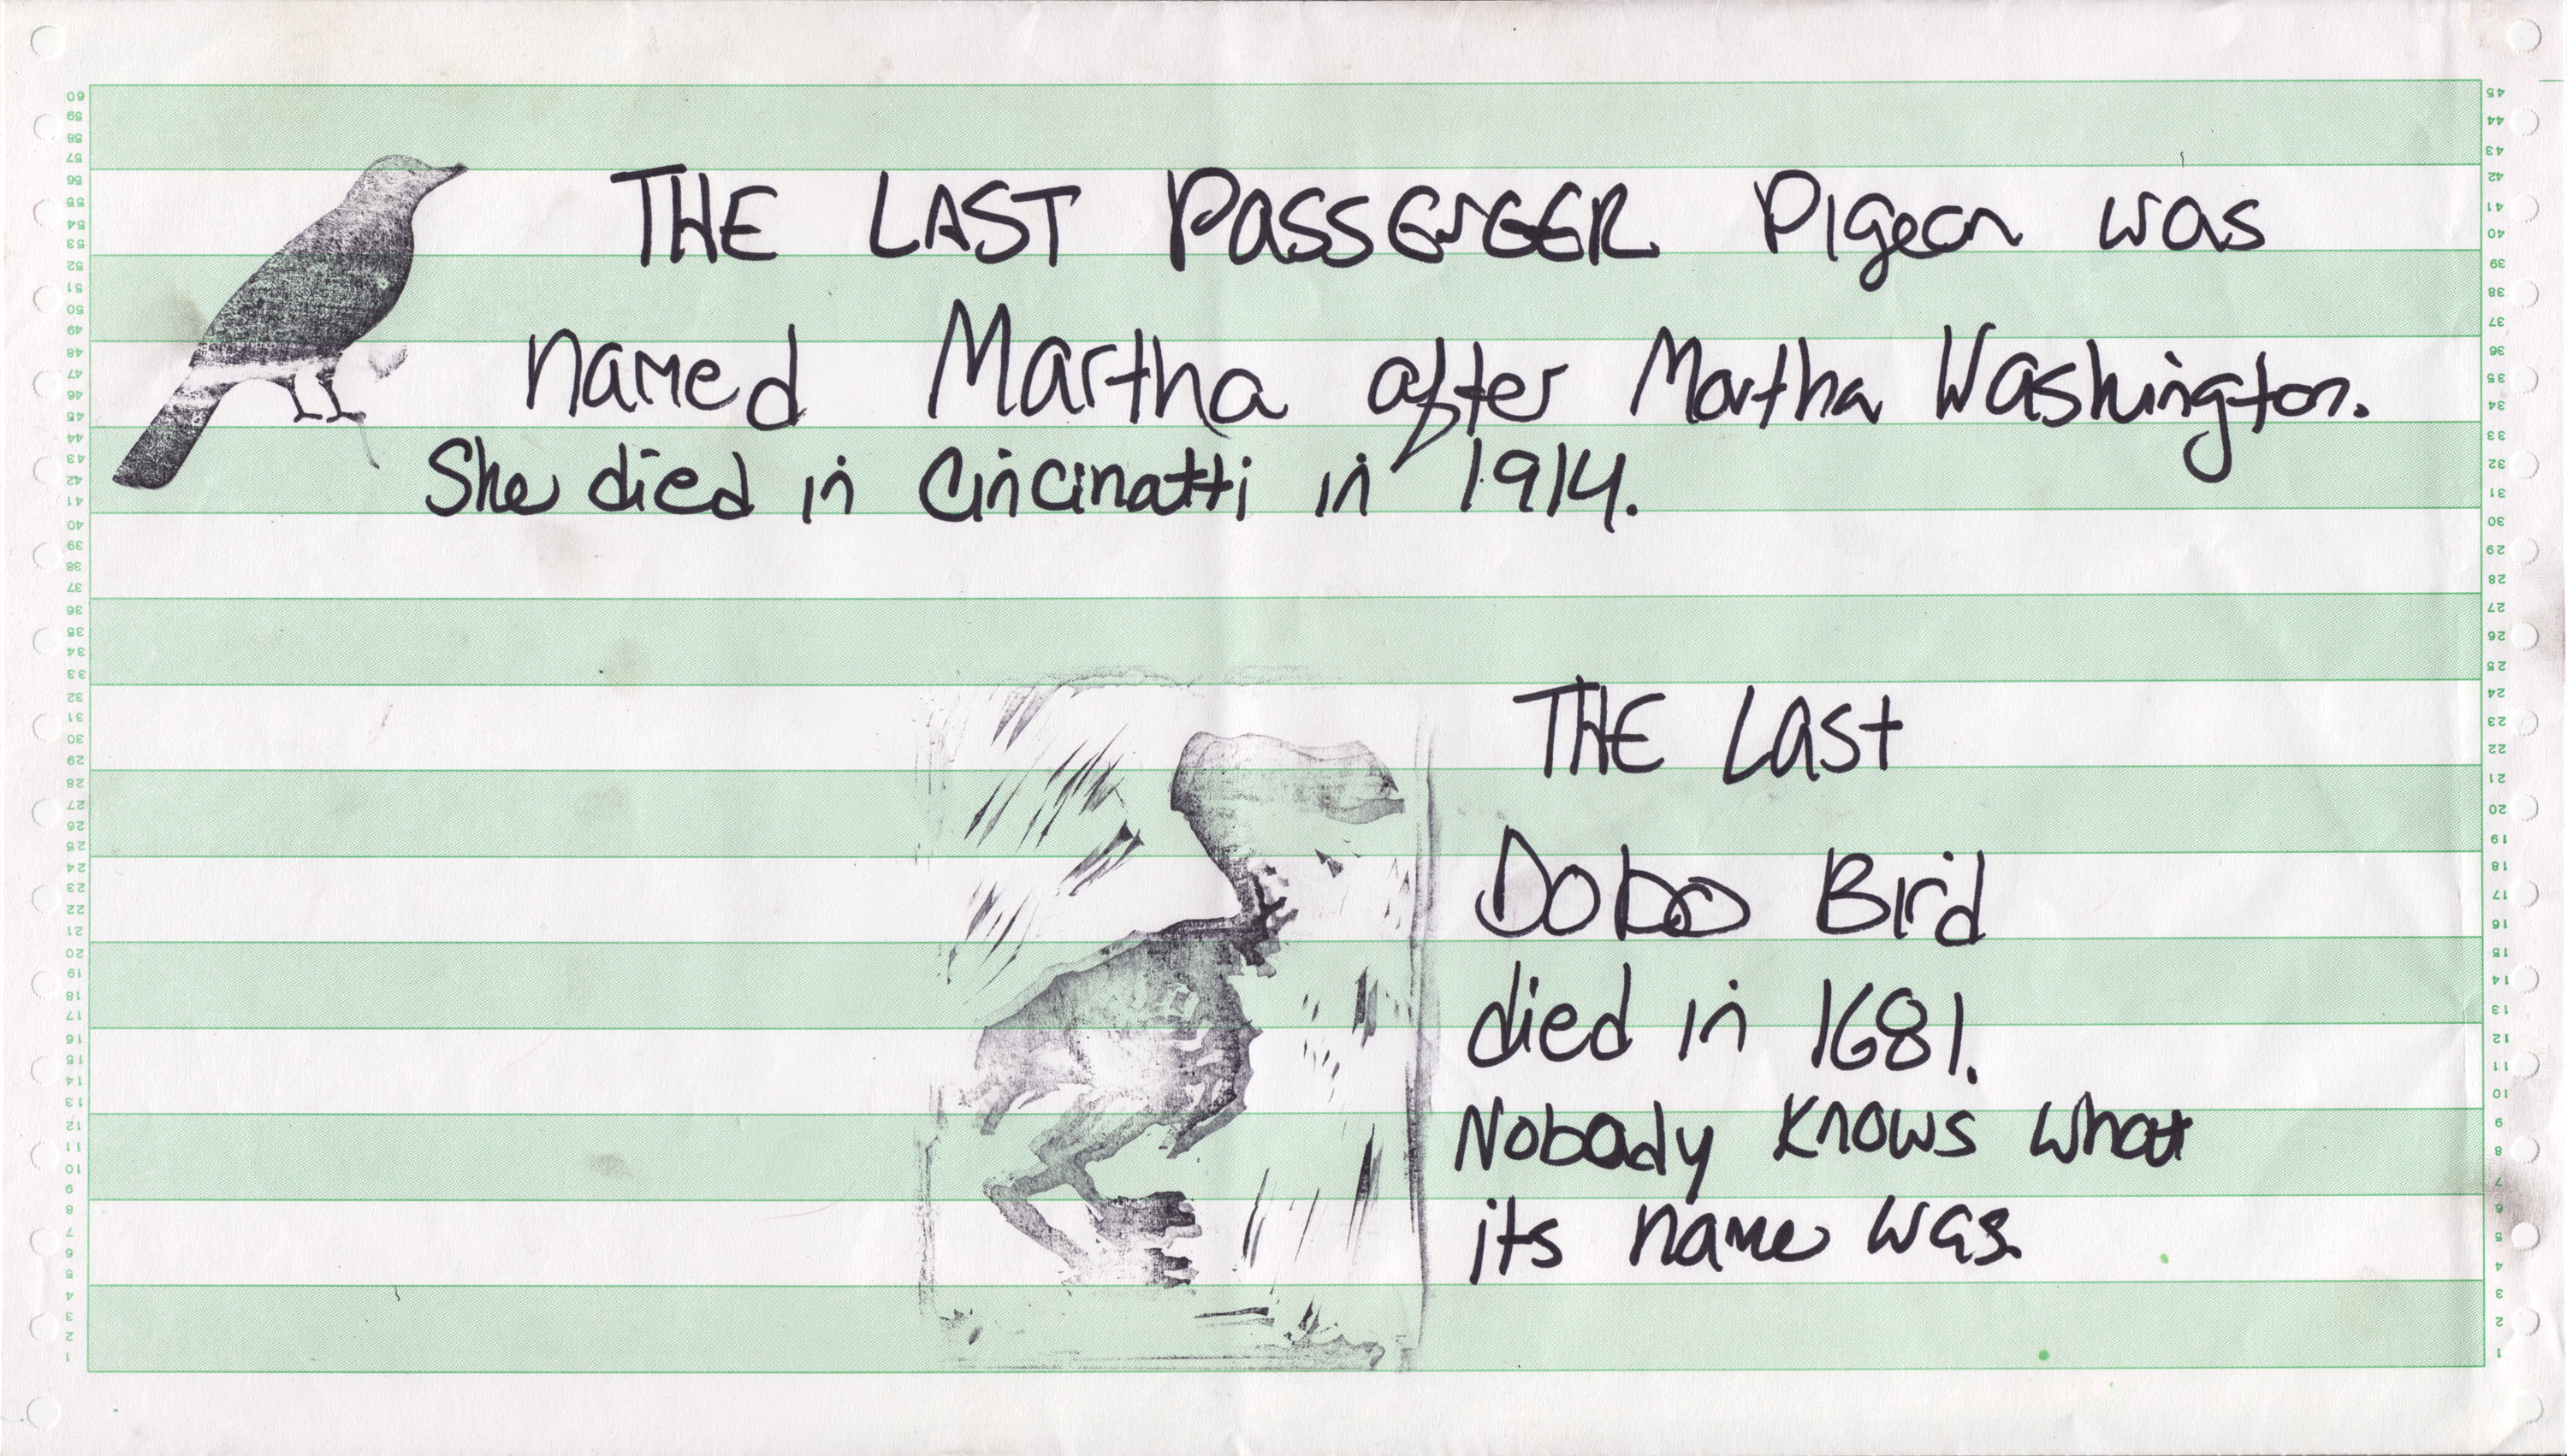 THE LAST PASSENGER Pigeon was
named Martha after Martha Washington.
She died in Cincinatti in 1914.
THE LAST
DODO Bird
died in 1681.
Nobody knows what
its name was.